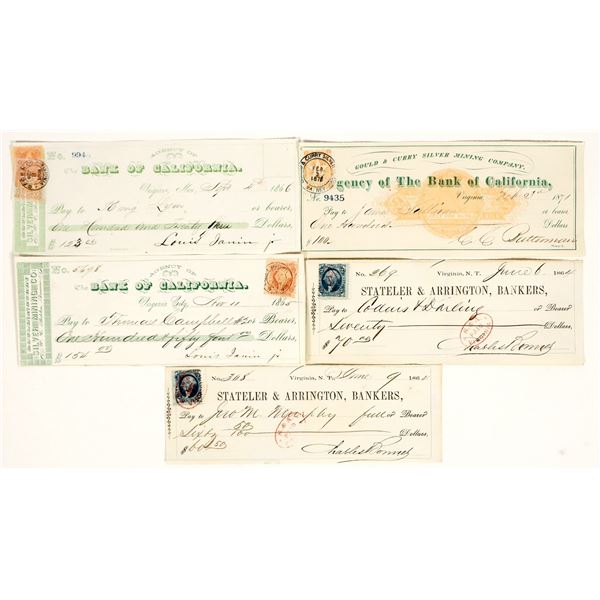 No. 994
AGENCY OF
The BANK OF CALIFORNIA.
Virginia, Nev. Sept 4th 1866
Pay to or bearer,
One Hundred and Twenty three Dollars,
$ 123.00 Louis Janin jr
SILVER MINING
GOULD & CURRY SILVER MINING COMPANY,
Agency of The Bank of California,
No. 9435 Virginia, Feb 2nd 1871
Pay to or bearer,
One Hundred Dollars,
$ 100.
& CURRY
FEB
1871
No. 3698
AGENCY OF
The BANK OF CALIFORNIA.
Virginia City, Nov 11 1865
Pay to Thomas Campbell or Bearer,
One Hundred fifty four Dollars,
$ 154.00 Louis Janin jr
SILVER MINING CO.
No. 269 Virginia, N. T. June 6 1864
STATELER & ARRINGTON, BANKERS,
Pay to & Darling or Bearer
Seventy Dollars,
$ 70.00 Charles Bonner
No. 308 Virginia, N. T. June 9 1864
STATELER & ARRINGTON, BANKERS,
Pay to Jno M. Murphy or Bearer
Sixty 50/100 Dollars,
$ 60.50 Charles Bonner